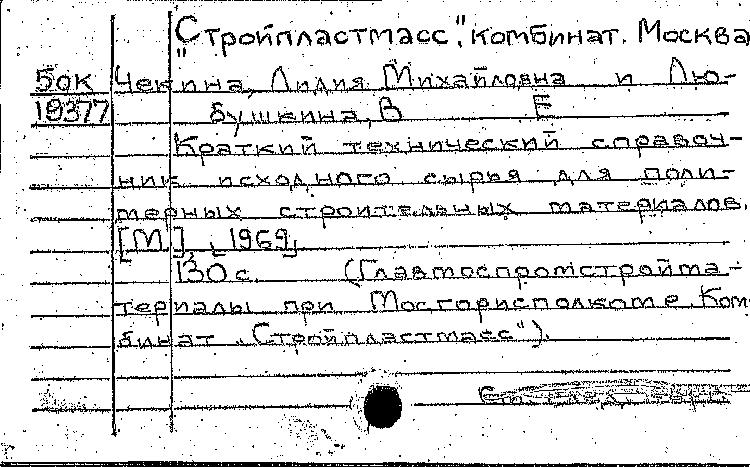 "Стройпластмасс", комбинат. Москва
БОК Чекина, Лидия Михайловна и Лю-
19377 бушкина, В Е
Краткий технический справоч-
ник исходного сырья для поли-
мерных строительных материалов.
[М], [1969]
130 с. (Главмоспромстройма-
териалы при Мосгорисполкоме. Ком-
бинат „Стройпластмасс").